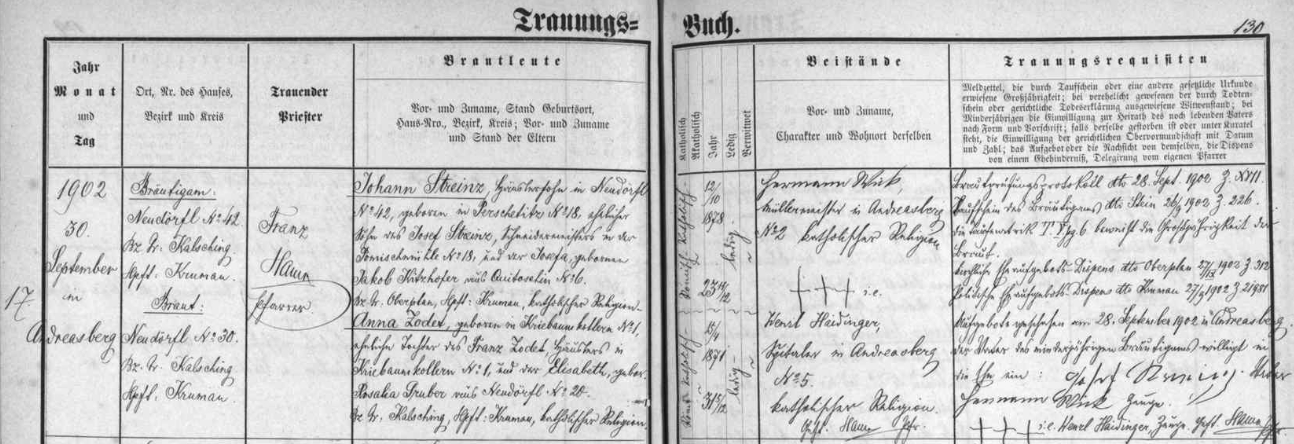 Trauungs=
Buch.
130
Jahr
Monat
und
Tag
Ort, Nr. des Hauses,
Bezirk und Kreis
Trauender
Priester
Brautleute
Vor- und Zuname, Stand Geburtsort,
Haus-Nro., Bezirk, Kreis; Vor- und Zuname
und Stand der Eltern
Katholisch
Akatholisch
Jahr
Ledig
Verwitwet
Beistände
Vor- und Zuname,
Charakter und Wohnort derselben
Trauungsrequisiten
Meldzettel, die durch Taufschein oder eine andere gesetzliche Urkunde
erwiesene Großjährigkeit; bei verehelicht gewesenen der durch Todten-
schein oder gerichtliche Todeserklärung ausgewiesene Witwenstand; bei
Minderjährigen die Einwilligung zur Heirath des noch lebenden Vaters
nach Form und Vorschrift; falls derselbe gestorben ist oder unter Kuratel
steht, die Einwilligung der gerichtlichen Obervormundschaft mit Datum
und Zahl; das Aufgebot oder die Nachsicht von demselben, die Dispens
von einem Ehehinderniß, Delegirung vom eigenen Pfarrer
17
1902
30.
September
in
Andreasberg
Bräutigam:
Neudörfl No 42
Bz. Gr. Kalsching
Hpft. Krumau.
Braut:
Neudörfl No 30.
Bz. Gr. Kalsching
Hpft. Krumau.
Franz
Hamm
Pfarrer
Johann Streinz, Häuslersohn in Neudörfl
No 42, geboren in No 18, ehelicher
Sohn des Josef Streinz, Schneidermeisters in der
No 18, und der Josefa, geborenen
Jakob No 6.
Bz. Gr. Oberplan, Hpft: Krumau, katholischer Religion
Anna Zodet, geboren in Kriebaumkollern No 1,
eheliche Tochter des Franz Zodet, Häuslers in
Kriebaumkollern No 1, und der Elisabeth, gebor.
Rosalia Gruber aus Neudörfl No 20.
Bz. Gr. Kalsching, Hpft: Krumau, katholischer Religion.
12/10
1878
ledig
1871
ledig
Hermann Wick,
Müllermeister in Andreasberg
No 2 katholischer Religion
+++ i.e.
Wenzl Haidinger,
in Andreasberg
No 5.
katholischer Religion.
Hamm Pfr.
Brautprüfungsprotokoll dto 28. Sept. 1902 Z. XVII.
Taufschein des Bräutigams dto 1902 Z. 226.
die beweist die Großjährigkeit der
Braut.
Aufgebots Dispens dto Oberplan 1902 Z. 312
Aufgebots Dispens dto Krumau 27/9 1902 Z.
Aufgebote geschehen am 28. September 1902 in Andreasberg.
der Vater des minderjährigen Bräutigams willigt in
die Ehe ein: Josef Vater
Hermann Wick Zeuge.
+++ i.e. Wenzl Haidinger, Zeuge. Hamm Pfr.